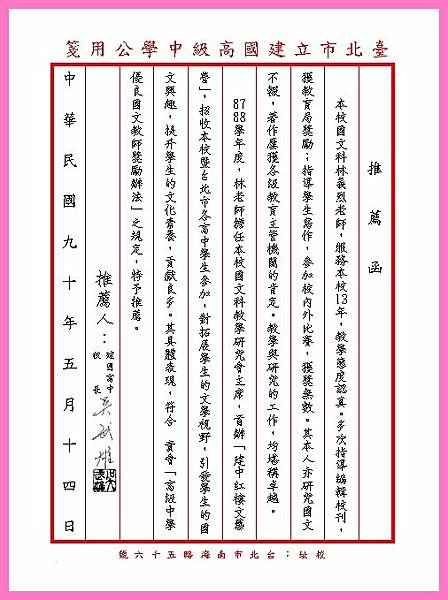 臺北市立建國高級中學公用箋
推薦函
本校國文科林義烈老師，服務本校13年，教學態度認真。多次指導編輯校刊，
獲教育局獎勵；指導學生寫作，參加校內外比賽，獲獎無數。其本人亦研究國文
不輟，著作屢獲各級教育主管機關的肯定。教學與研究的工作，均堪稱卓越。
87
88學年度，林老師擔任本校國文科教學研究會主席，首辦「建中紅樓文藝
營」，招收本校暨台北市各高中學生參加，對拓展學生的文學視野，引發學生的國
文興趣，提升學生的文化素養，貢獻良多。其具體表現，符合 貴會「高級中學
優良國文教師獎勵辦法」之規定，特予推薦。
推薦人：建國高中
校長 吳武雄
中華民國九十年五月十四日
校址：台北市南海路五十六號